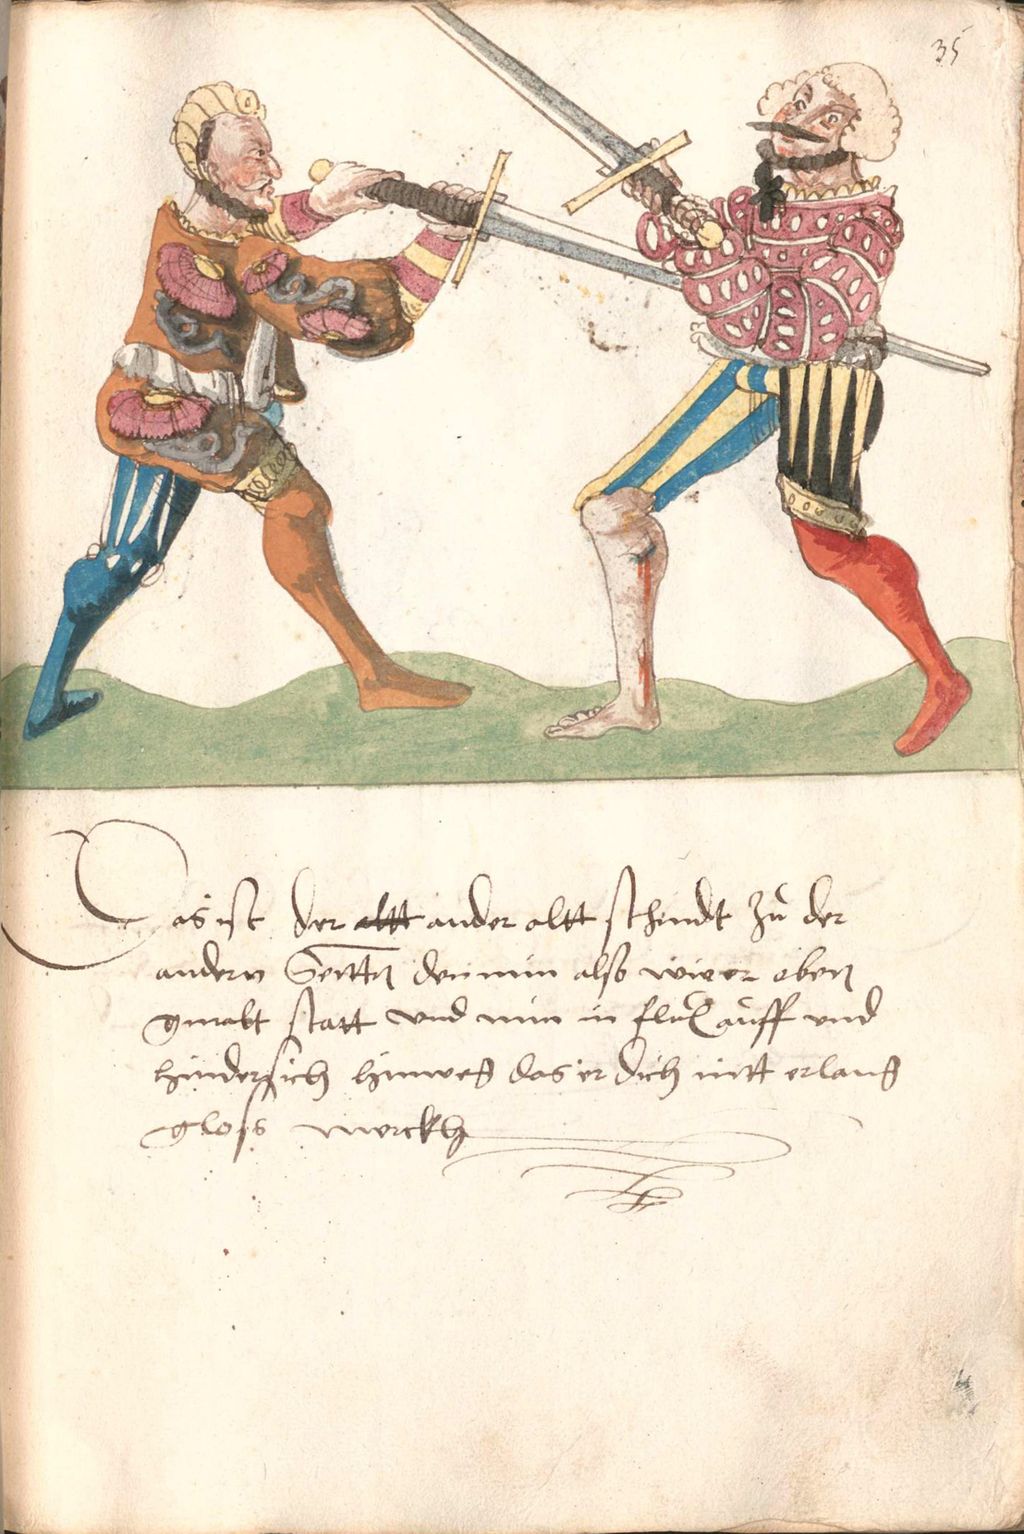 35
Das ist der altt ander altt schindt zů der
andern Seitten den nim also wie er oben
gmalt statt vnd nim in flux auff vnd
hindersich hinweg das er dich nitt erlang
gloss merckh